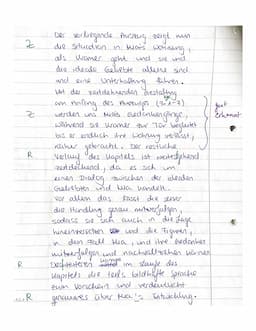 Der vorliegende Auszug zeigt nun
Z die Situation in Mais Wohnung,
als Kramer geht und sie und
die ideale Geliebte alleine sind
und eine Unterhaltung führen.
Mit der zeitdehnenden Gestaltung
am Anfang des Auszuges (Z. 1-7)
Z werden uns Mais Gedankengänge,
während sie Kramer zur Tür begleitet gut erkannt
bis er endlich ihre Wohnung verlässt,
näher gebracht. Der restliche
R Verlauf des Kapitels ist weitgehend
zeitdeckend, da es sich um
einen Dialog zwischen der idealen
Geliebten und Mia handelt.
Vor allem das lässt die Leser
die Handlung genau mitverfolgen,
sodass sie sich auch in die Lage
hineinversetzen und die Figuren,
in dem Fall Mia, und ihre Gedanken
mitverfolgen und nachvollziehen können.
R Desweiteren kommt im Laufe des
Kapitels die teils bildhafte Sprache
zum Vorschein und verdeutlicht
...R genaueres über Mia's Entwicklung.